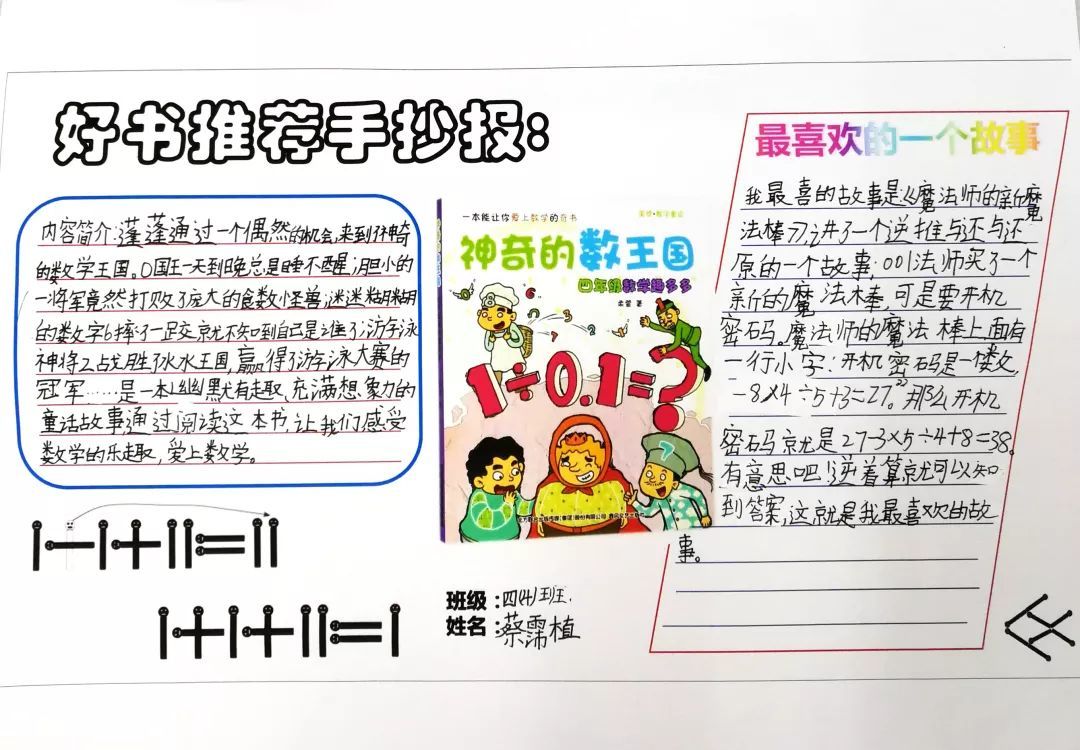 好书推荐手抄报:
内容简介:蓬蓬通过一个偶然的机会,来到神奇
的数学王国。0国王一天到晚总是睡不醒,胆小的
一将军竟然打败了庞大的食数怪兽,迷迷糊糊
的数字6摔了一跤就不知到自己是谁了,游泳
神将2战胜了水水王国,赢得了游泳大赛的
冠军……是一本幽默有趣,充满想象力的
童话故事通过阅读这本书,让我们感受
数学的乐趣,爱上数学。
一本能让你爱上数学的奇书
神奇的数王国
四年级数学趣多多
1÷0.1=?
最喜欢的一个故事
我最喜的故事是《魔法师的新魔
法棒》,讲了一个逆推与还与还
原的一个故事,001法师买了一个
新的魔法棒,可是要开机
密码。魔法师的魔法棒上面有
一行小字:开机密码是一个数,
-8×4÷5+3=27。”那么开机
密码就是27-3×5÷4+8=38。
有意思吧!逆着算就可以知
到答案,这就是我最喜欢的故
事。
1-1+11=11
1+1+11=1
班级:四(4)班.
姓名:蔡霈植